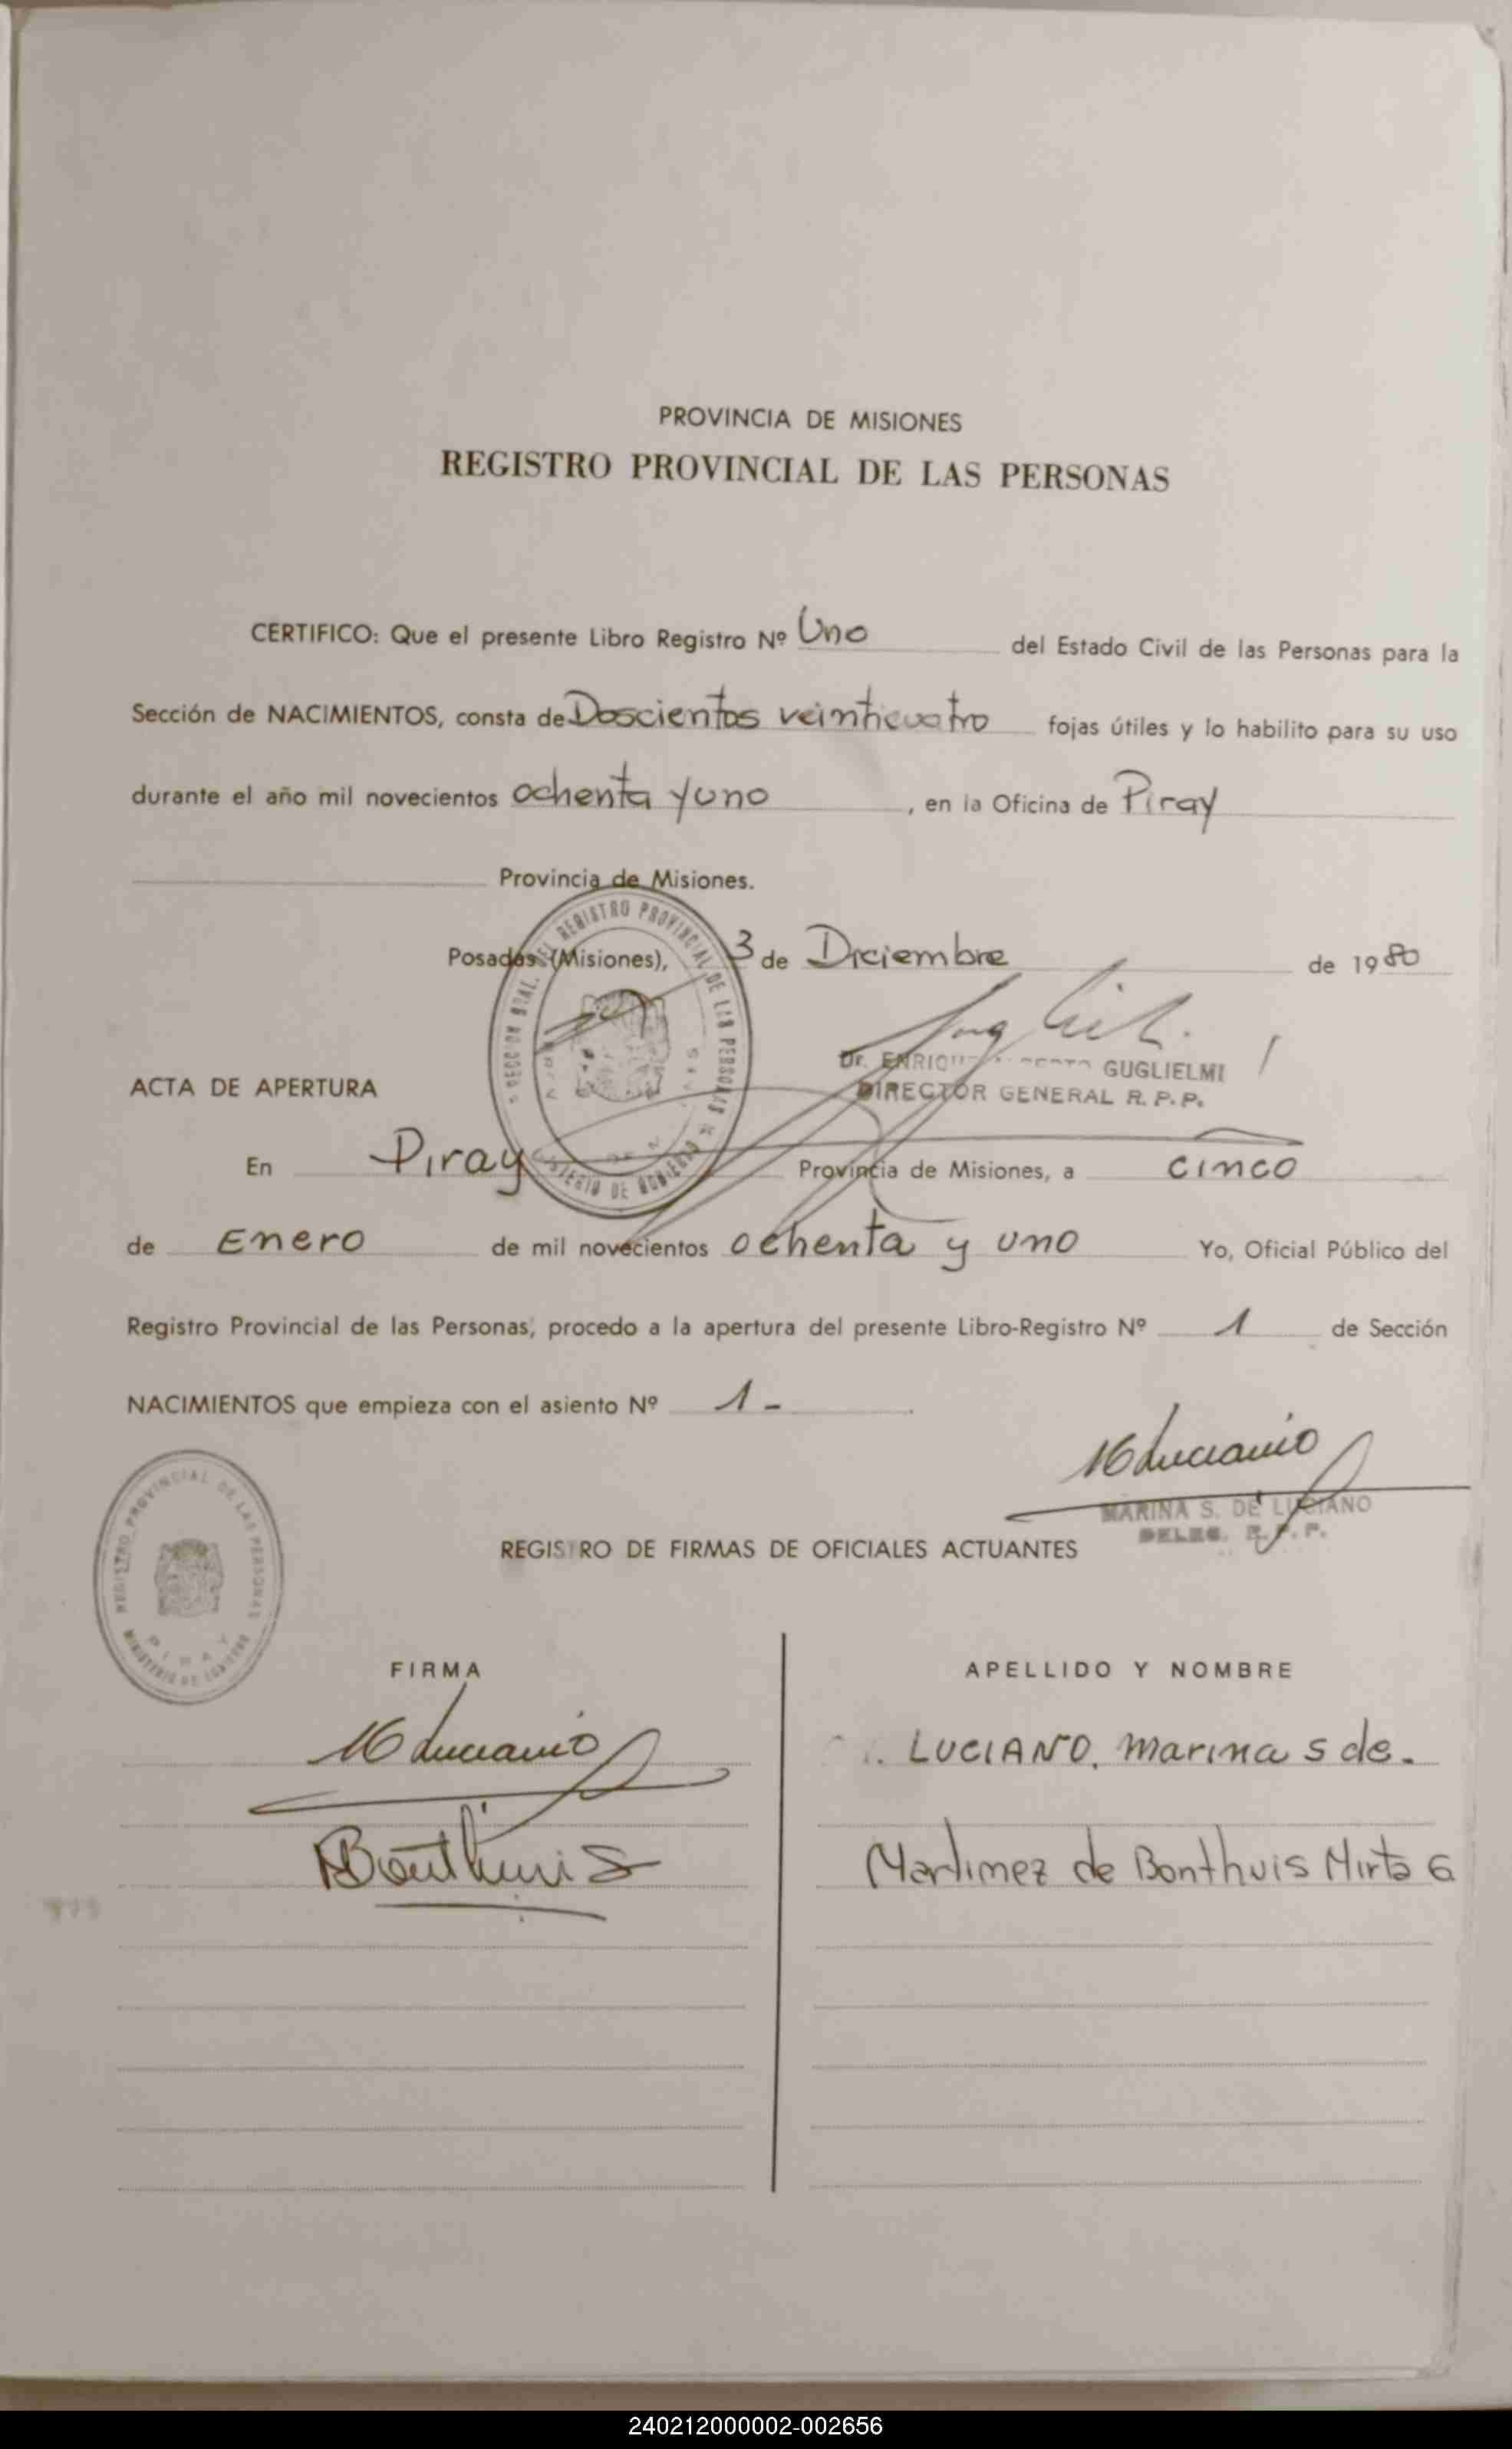 PROVINCIA DE MISIONES
REGISTRO PROVINCIAL DE LAS PERSONAS
CERTIFICO: Que el presente Libro Registro Nº Uno del Estado Civil de las Personas para la
Sección de NACIMIENTOS, consta de Doscientos veinticuatro fojas útiles y lo habilito para su uso
durante el año mil novecientos ochenta y uno, en la Oficina de Piray
Provincia de Misiones.
REGISTRO PROVINCIAL DE LAS PERSONAS
Posadas (Misiones), 3 de Diciembre de 1980
Dr. GUGLIELMI
DIRECTOR GENERAL R. P. P.
ACTA DE APERTURA
En Piray Provincia de Misiones, a cinco
de Enero de mil novecientos ochenta y uno Yo, Oficial Público del
Registro Provincial de las Personas, procedo a la apertura del presente Libro-Registro Nº 1 de Sección
NACIMIENTOS que empieza con el asiento Nº 1 -
Luciano
MARINA S. DE LUCIANO
DELEG. R. P. P.
REGISTRO PROVINCIAL DE LAS PERSONAS
MINISTERIO DE GOBIERNO
PIRAY
REGISTRO DE FIRMAS DE OFICIALES ACTUANTES
FIRMA APELLIDO Y NOMBRE
Luciano LUCIANO, Marina S de.
Bonthuis Martinez de Bonthuis Mirta G
240212000002-002656